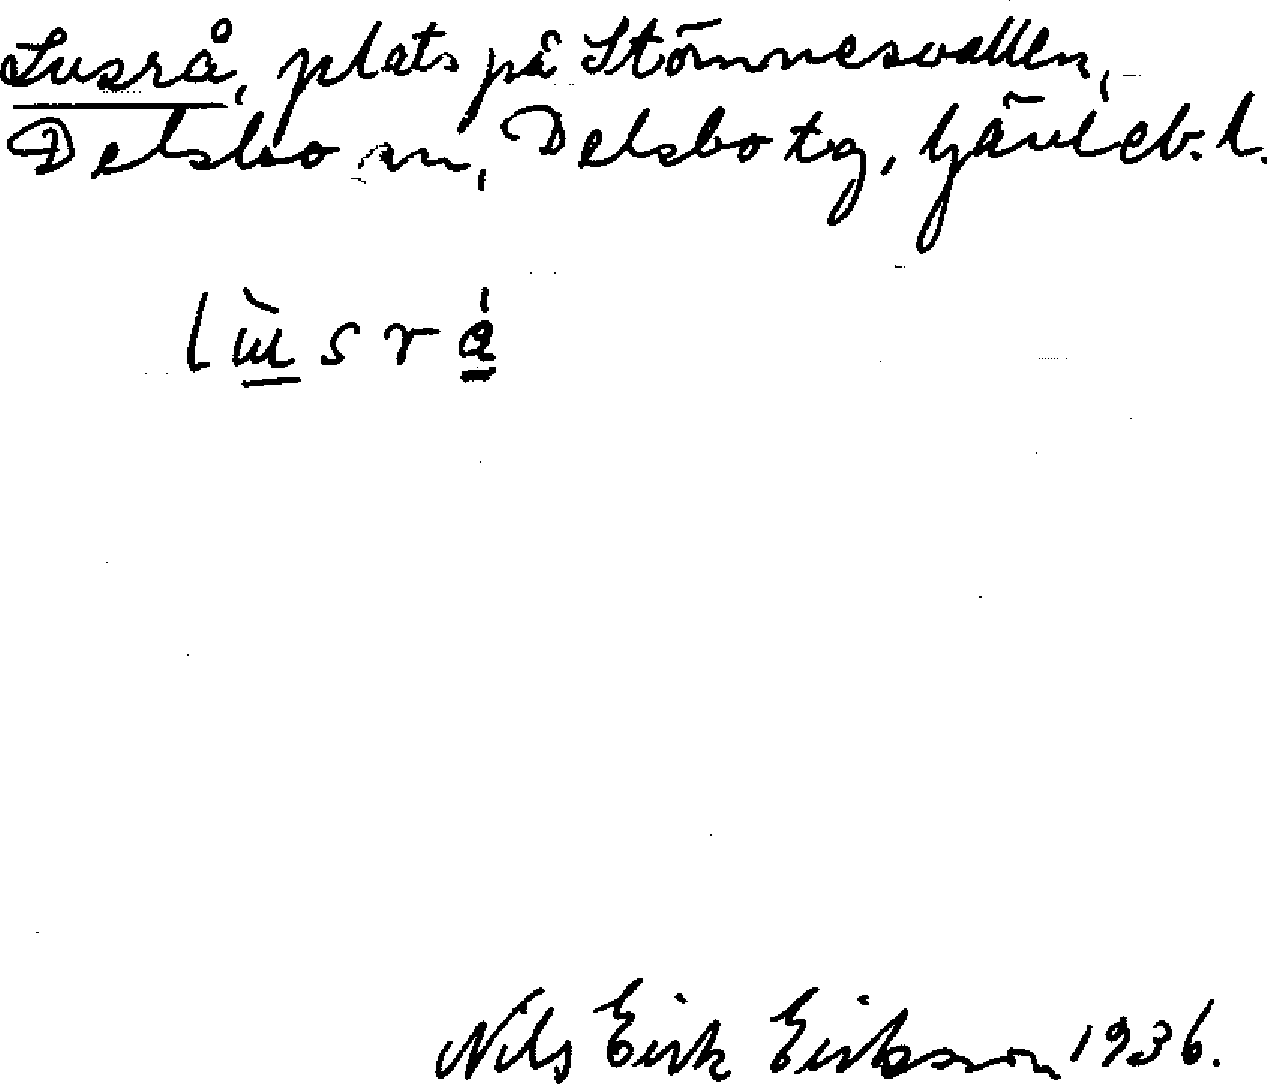 Lusrå, plats på Stömnesvallen,
Delsbo sn, Delsbo tg, Gävleb. l.
Nils Eirk Eirksson 1936.